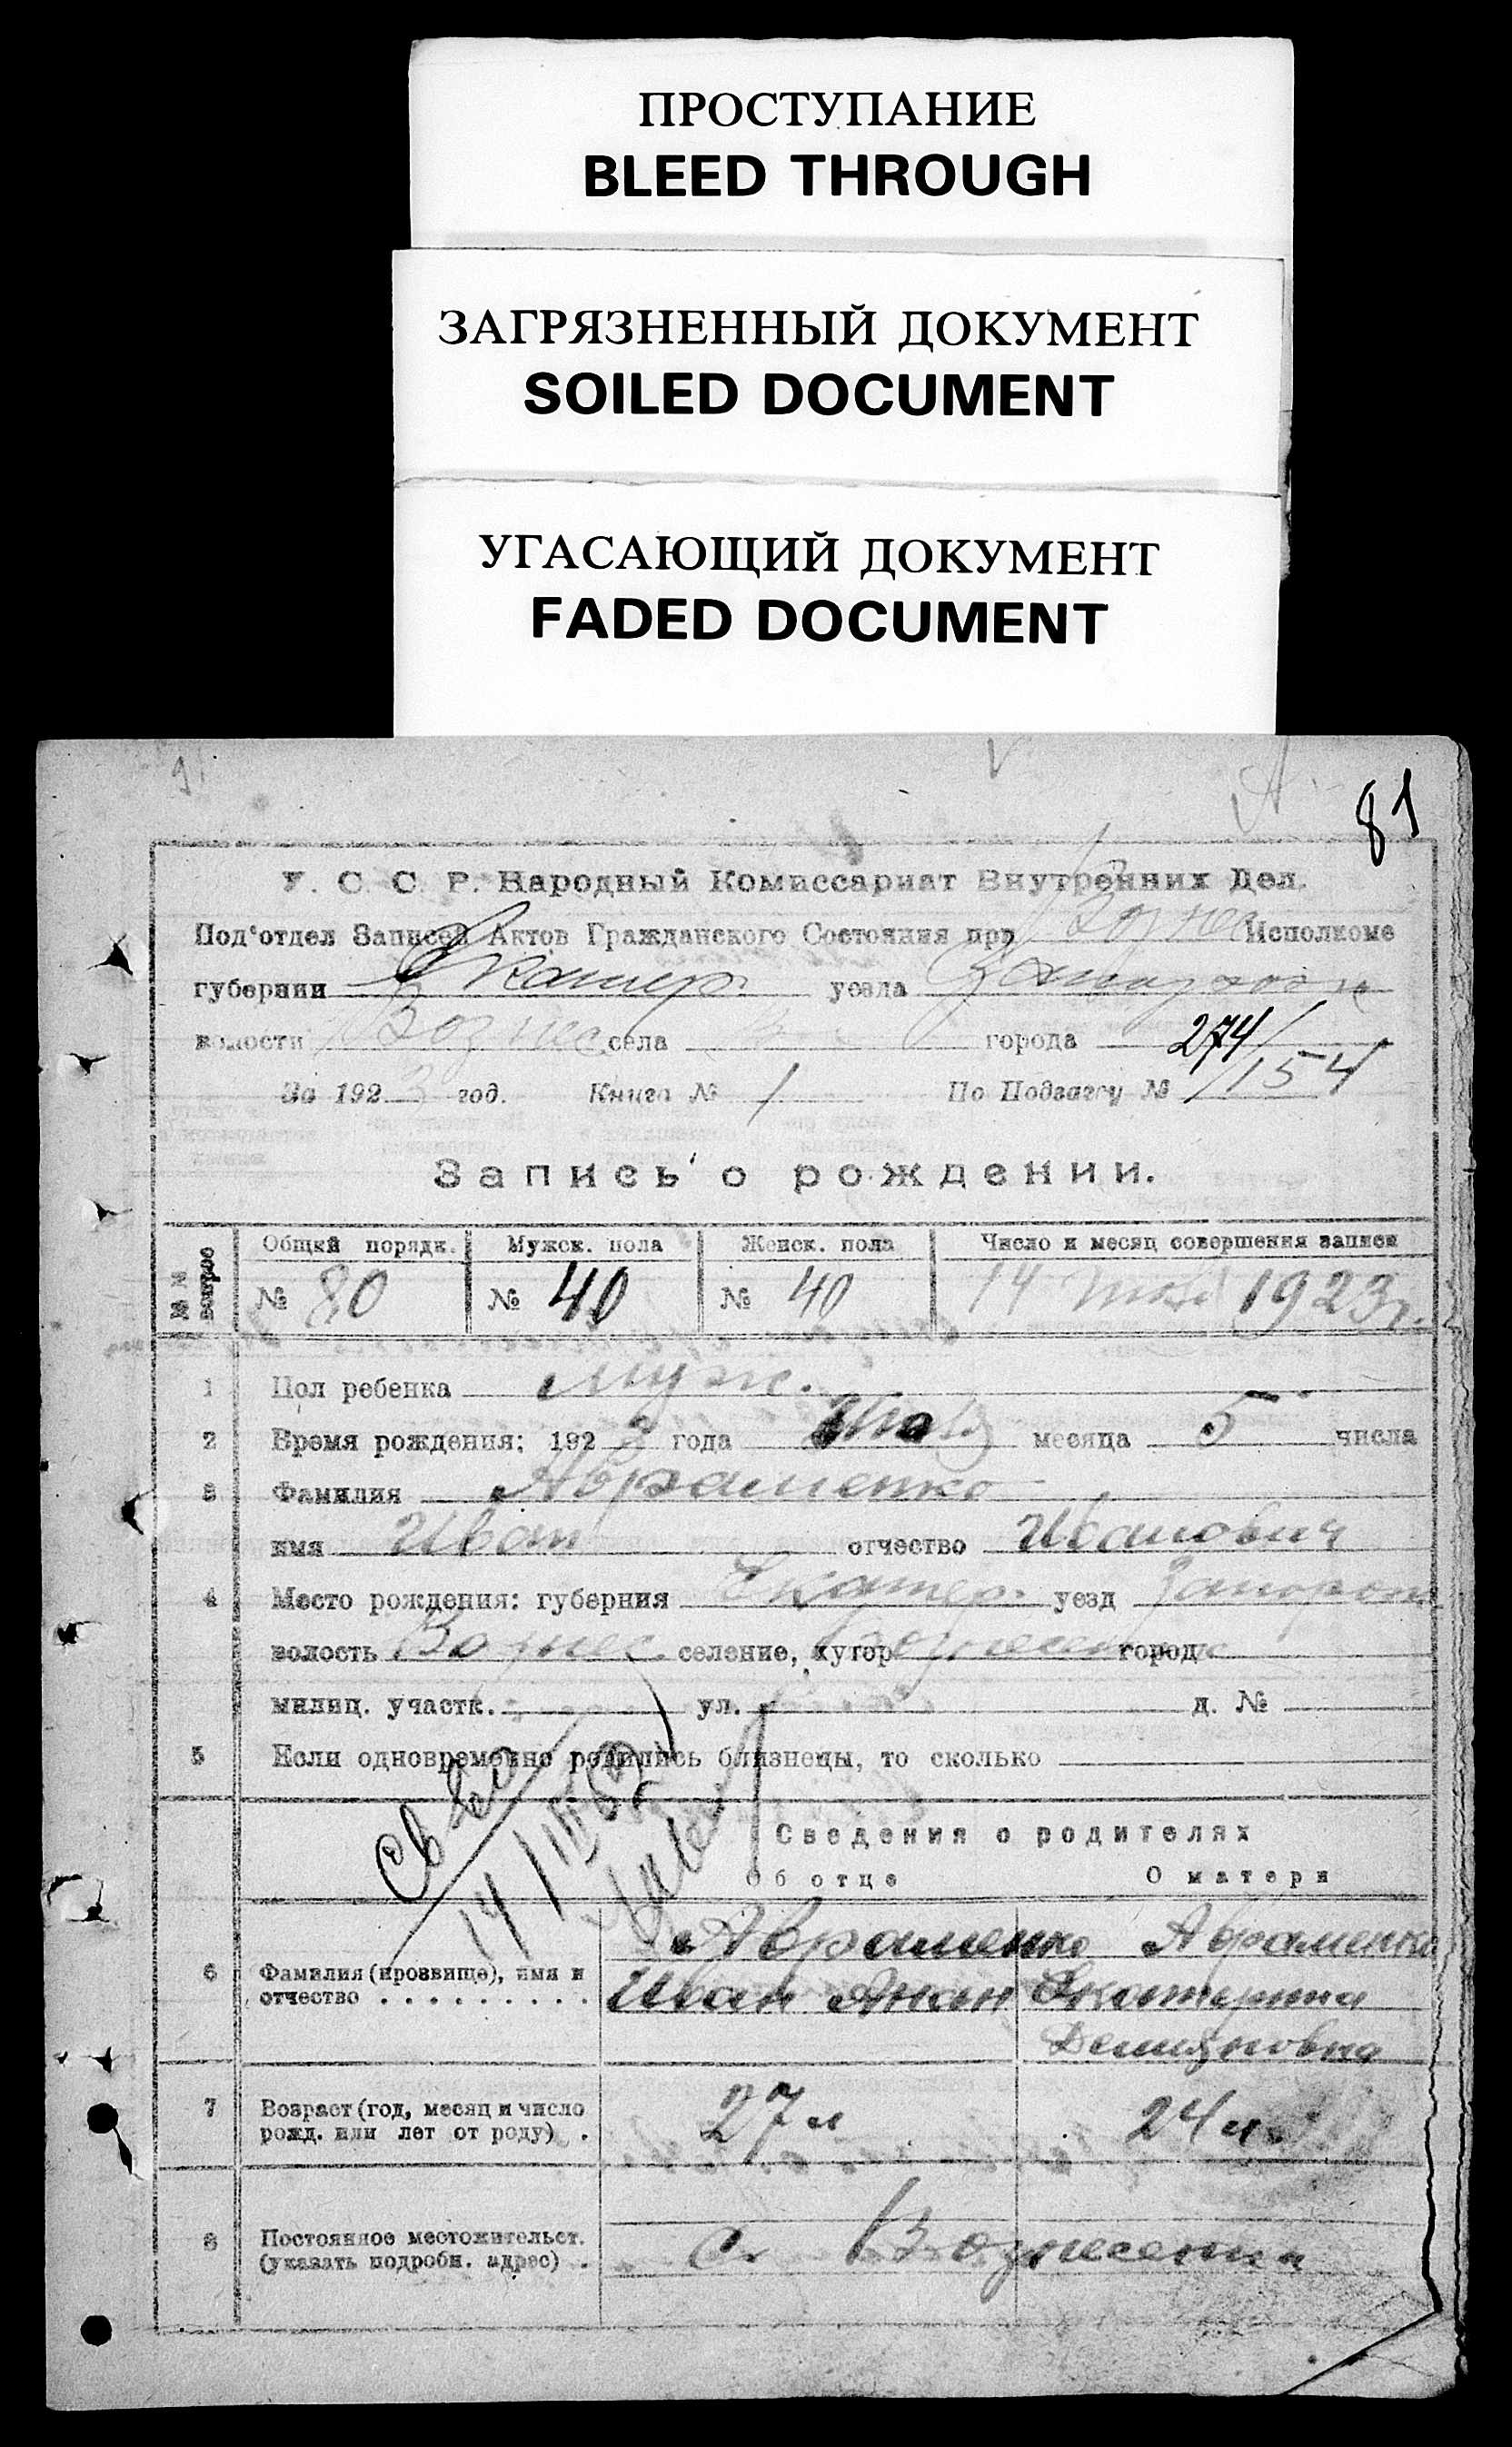 ПРОСТУПАНИЕ
BLEED THROUGH
ЗАГРЯЗНЕННЫЙ ДОКУМЕНТ
SOILED DOCUMENT
УГАСАЮЩИЙ ДОКУМЕНТ
FADED DOCUMENT
81
У. С. С. Р. Народный Комиссариат Внутренних Дел.
Под'отдел Записей Актов Гражданского Состояния при Вознес Исполкоме
губернии Екатер. уезда
волости Вознес села города 274/
За 1923 год. Книга № 1 По Подзагсу № /154
Запись о рождении.
№№ вопрос Общий порядк. Мужск. пола Женск. пола Число и месяц совершения записи
№ 80 № 40 № 40 14 1923 г.
1 Пол ребенка муж.
2 Время рождения: 1923 года месяца 5 числа
3 Фамилия Авраменко
имя Иван отчество Иванович
4 Место рождения: губерния Екатер. уезд Запорож
волость Вознес. селение, хутор город
милиц. участк. ул. д. №
5 Если одновременно родились близнецы, то сколько
Сведения о родителях
Об отце О матери
6 Фамилия (прозвище), имя и отчество . . . . . . . . . .
Авраменко Авраменко
Иван Анан Екатерина
Демьяновна
7 Возраст (год, месяц и число рожд. или лет от роду) .
27 л 24 л.
8 Постоянное местожительст. (указать подробн. адрес) .
с. Вознесенка